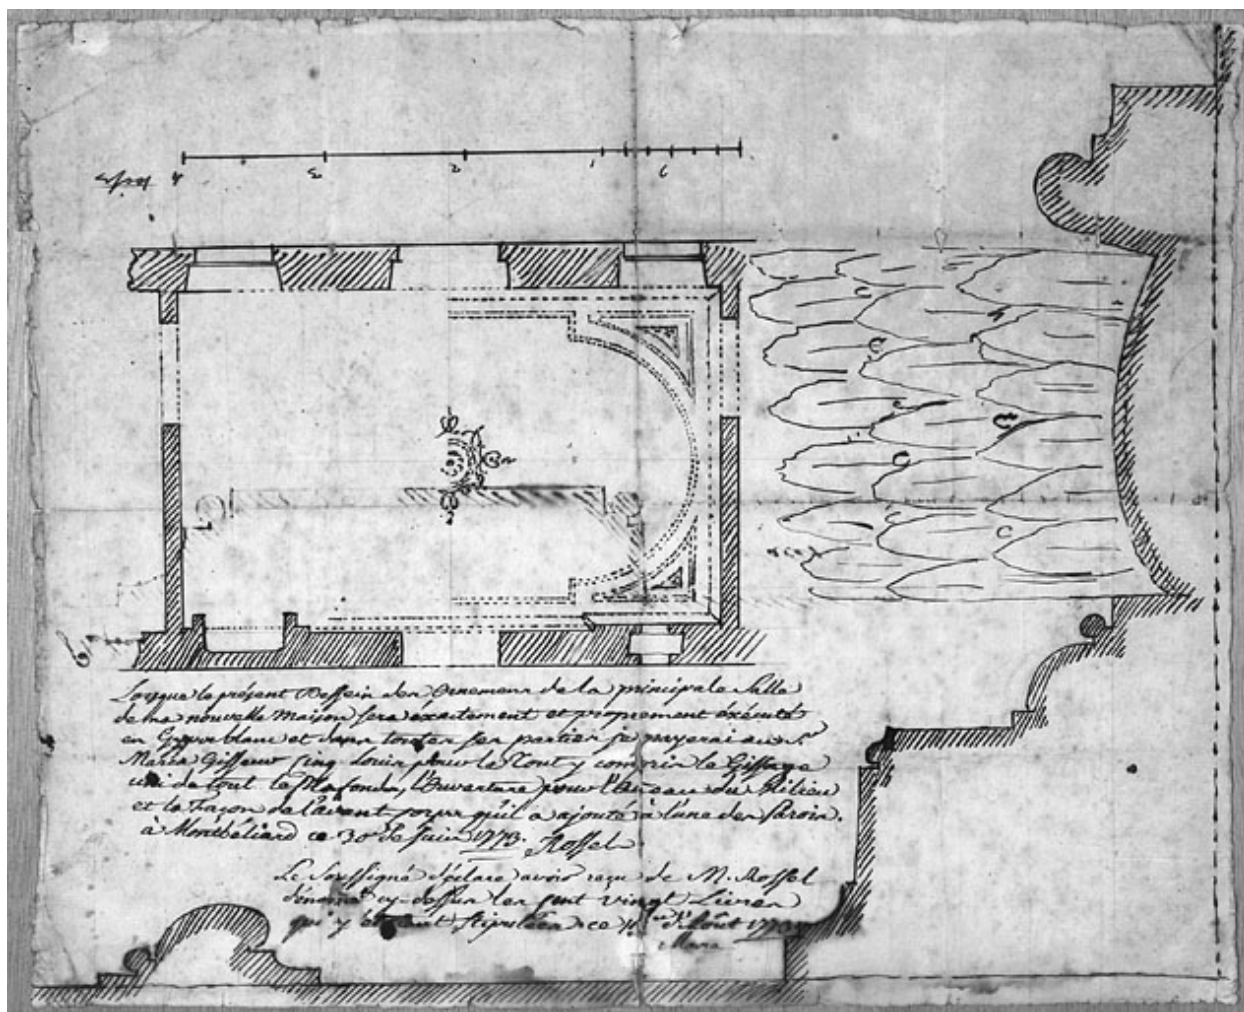 4 3 2 1 6
Lorsque le présent Dessein des Ornemens de la principale Salle
de ma nouvelle Maison sera éxactement et proprement éxécuté
en Gypse blanc et dans toutes ses parties je payerai au Sr.
Mara Gisseur cinq Louis pour le Tout y compris le Gissage
uni de tout le Plafonds, l'Ouverture pour l'Anneau du Milieu
et la Façon de l'avant corps qu'il a ajouté à l'une des Parois.
à Montbéliard ce 30e de Juin 1773. Rossel
Le Soussigné déclare avoir reçu de M. Rossel
dénommé cy-dessus les cent vingt Livres
qui y stipulées ce d'Août 1773
Mara